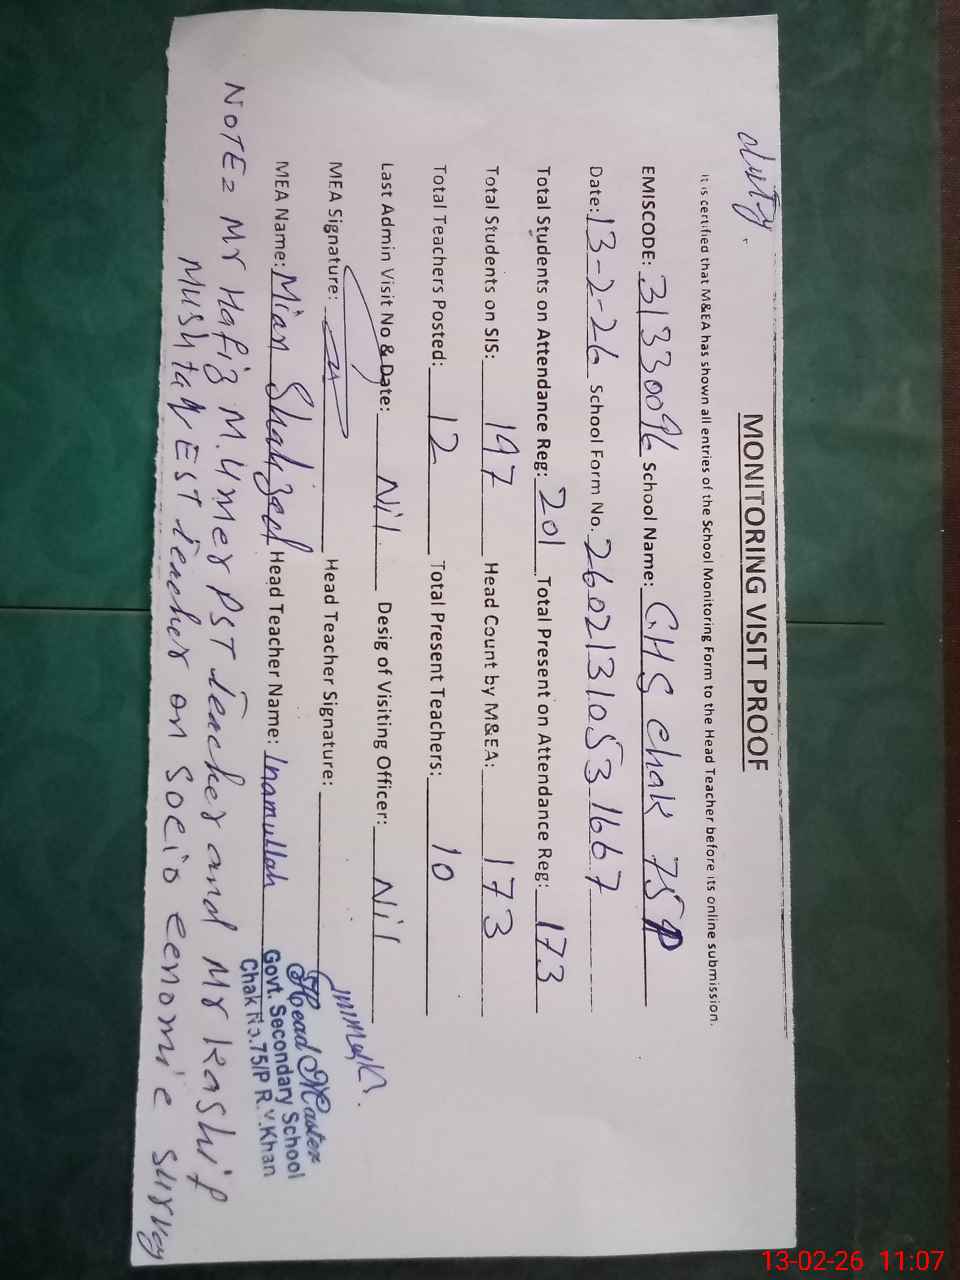 duty.
MONITORING VISIT PROOF
It is certified that M&EA has shown all entries of the School Monitoring Form to the Head Teacher before its online submission.
EMISCODE: 31330096 School Name: GHS Chak 75P
Date: 13-2-26 School Form No. 26021310531667
Total Students on Attendance Reg: 201 Total Present on Attendance Reg: 173
Total Students on SIS: 197 Head Count by M&EA: 173
Total Teachers Posted: 12 Total Present Teachers: 10
Last Admin Visit No & Date: Nil Desig of Visiting Officer: Nil
MEA Signature: Head Teacher Signature:
MEA Name: Mian Shahzad Head Teacher Name: Inamullah
Head Master
Govt. Secondary School
Chak No.75/P R.Y.Khan
NOTE= Mr Hafiz M.Umer PST teacher and Mr Kashif
Mushtaq EST teacher on Socio eenomic survey
13-02-26 11:07